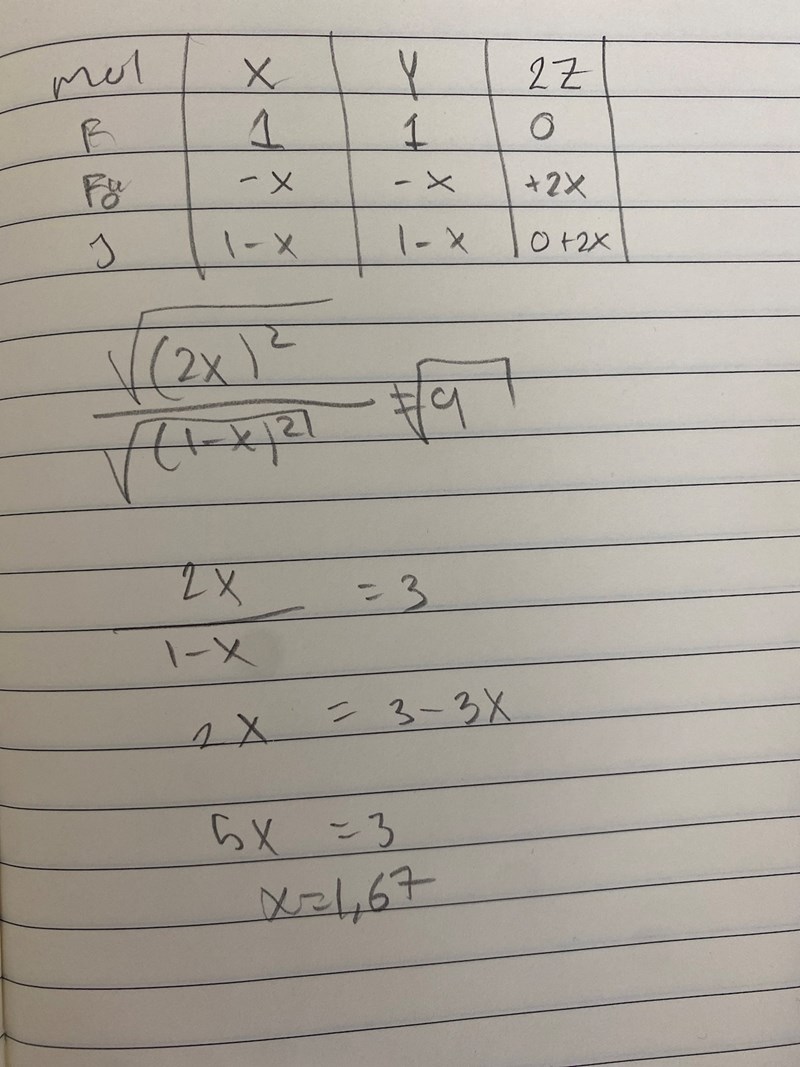 mol X Y 2Z
F 1 1 0
Fö -x -x +2x
J 1-x 1-x 0+2x
√(2x)² / √(1-x)² = √9
2x / 1-x = 3
2x = 3-3x
5x = 3
x=1,67